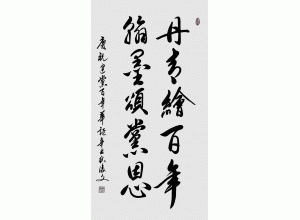 丹青繪百年
翰墨頌黨恩
慶祝建黨百年華誕辛丑